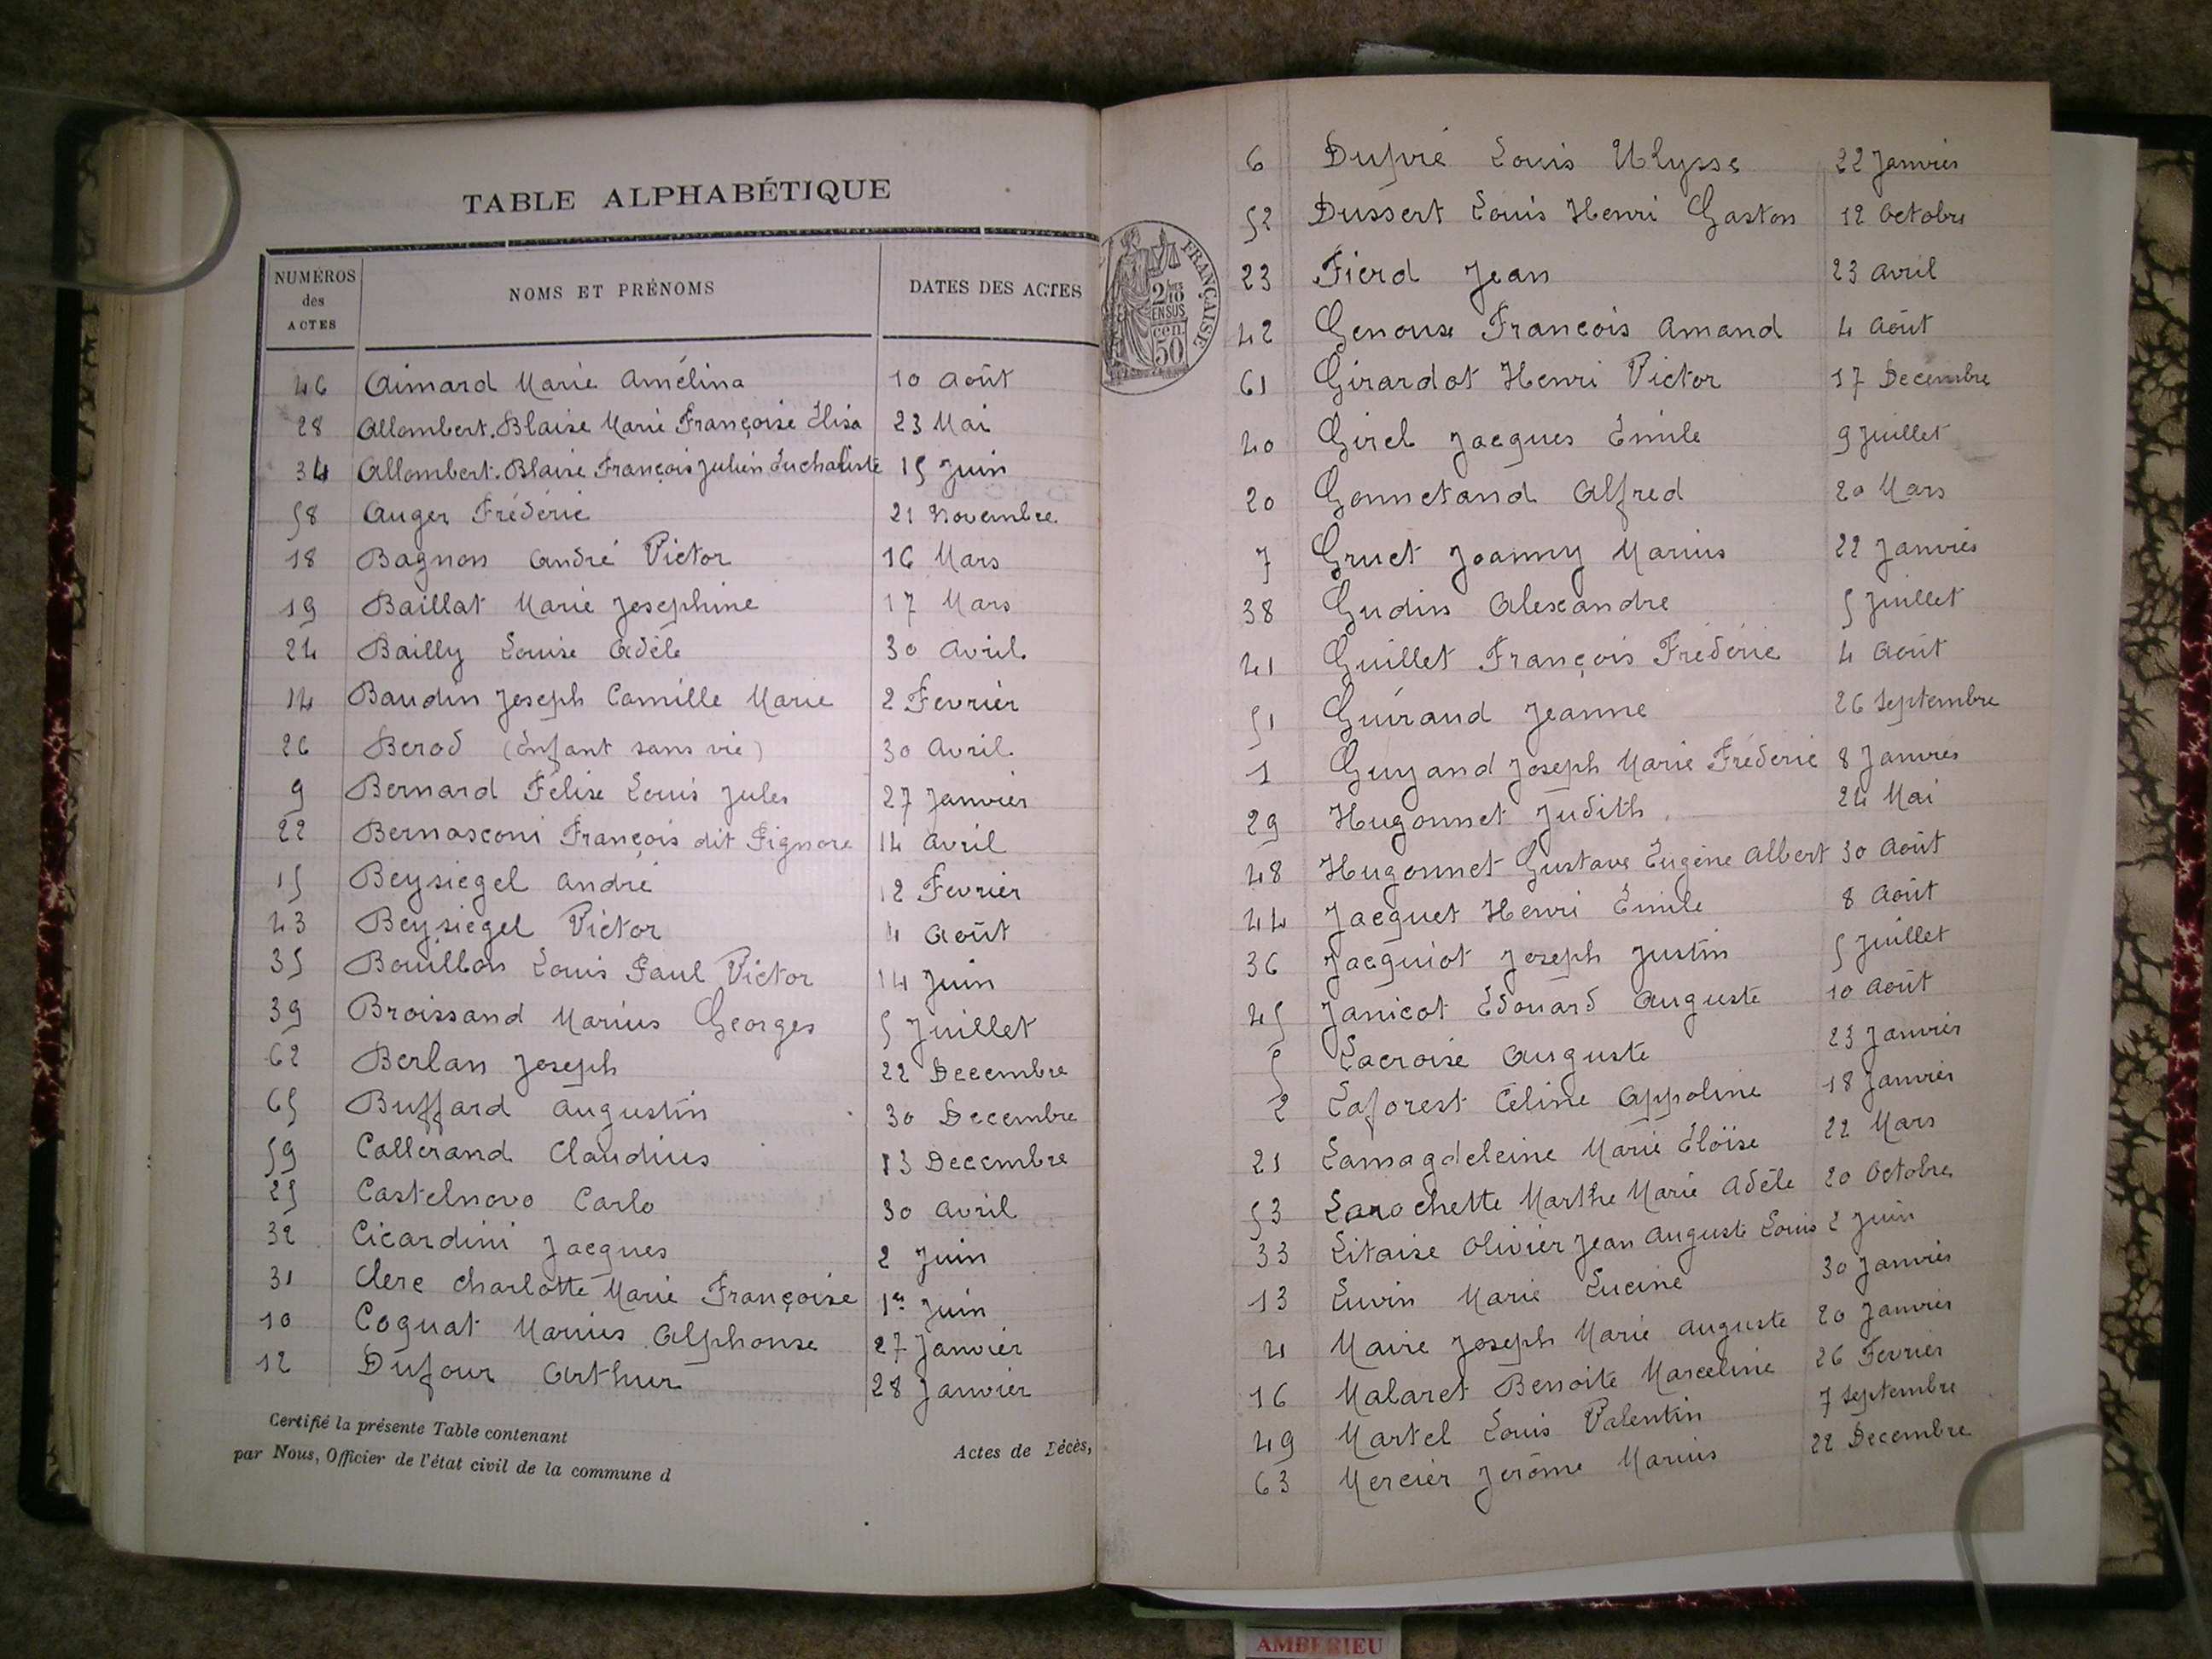 TABLE ALPHABÉTIQUE
NUMÉROS des ACTES NOMS ET PRÉNOMS DATES DES ACTES
46 Aimard Marie Amélina 10 Août
28 Allombert.Blaise Marie Françoise Élisa 23 Mai
34 Allombert.Blaise François Julien Euchariste 15 Juin
58 Auger Frédéric 21 Novembre
18 Bagnon André Victor 16 Mars
19 Baillat Marie Josephine 17 Mars
24 Bailly Louise Adèle 30 Avril
14 Baudin Joseph Camille Marie 2 Fevrier
26 Berod (Enfant sans vie) 30 Avril
9 Bernard Félix Louis Jules 27 Janvier
22 Bernasconi François dit Pignore 14 Avril
15 Beysiegel André 12 Fevrier
43 Beysiegel Victor 4 Août
35 Bouillon Louis Paul Victor 14 Juin
39 Broissand Marius Georges 5 Juillet
62 Berlan Joseph 22 Decembre
65 Buffard Augustin 30 Decembre
59 Callerand Claudius 13 Decembre
25 Castelnovo Carlo 30 Avril
32 Cicardini Jacques 2 Juin
31 Clerc Charlotte Marie Françoise 1er Juin
10 Coquat Marius Alphonse 27 Janvier
12 Dufour Arthur 28 Janvier
Certifié la présente Table contenant Actes de Décès,
par Nous, Officier de l'état civil de la commune d
FRANÇAISE
2/10
EN SUS
50 cen.
6 Dupré Louis Ulysse 22 Janvier
52 Dussert Louis Henri Gaston 12 Octobre
23 Fierd Jean 23 Avril
42 Genoux Francois Amand 4 Août
61 Girardot Henri Victor 17 Decembre
40 Girel Jacques Émile 9 Juillet
20 Gonnetand Alfred 20 Mars
7 Gruet Joanny Marius 22 Janvier
38 Gudin Alexandre 5 Juillet
41 Guillet François Frédéric 4 Août
51 Guiraud Jeanne 26 Septembre
1 Guyand Joseph Marie Frédéric 8 Janvier
29 Hugonnet Judith 24 Mai
48 Hugonnet Gustave Eugène Albert 30 Août
44 Jacquet Henri Émile 8 Août
36 Jacquiot Joseph Justin 5 Juillet
45 Janicot Édouard Auguste 10 Août
5 Lacroix Auguste 23 Janvier
2 Laforest Céline Appoline 18 Janvier
21 Lamagdeleine Marie Éloïse 22 Mars
53 Larochette Marthe Marie Adèle 20 Octobre
33 Litaise Olivier Jean Auguste Louis 2 Juin
13 Luvin Marie Lucine 30 Janvier
4 Maire Joseph Marie Auguste 20 Janvier
16 Malaret Benoite Marceline 26 Fevrier
49 Martel Louis Valentin 7 Septembre
63 Mercier Jerôme Marius 22 Decembre
AMBERIEU